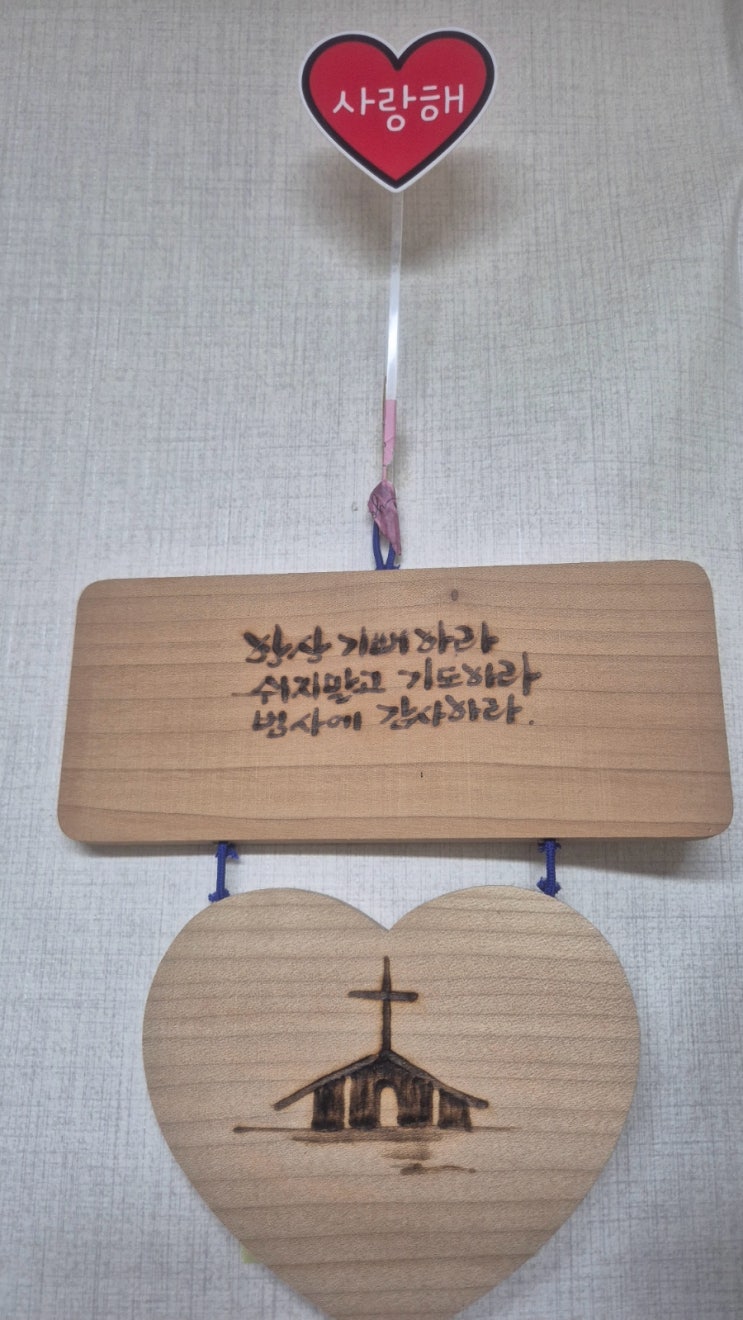 사랑해
항상 기뻐하라
쉬지말고 기도하라
범사에 감사하라.